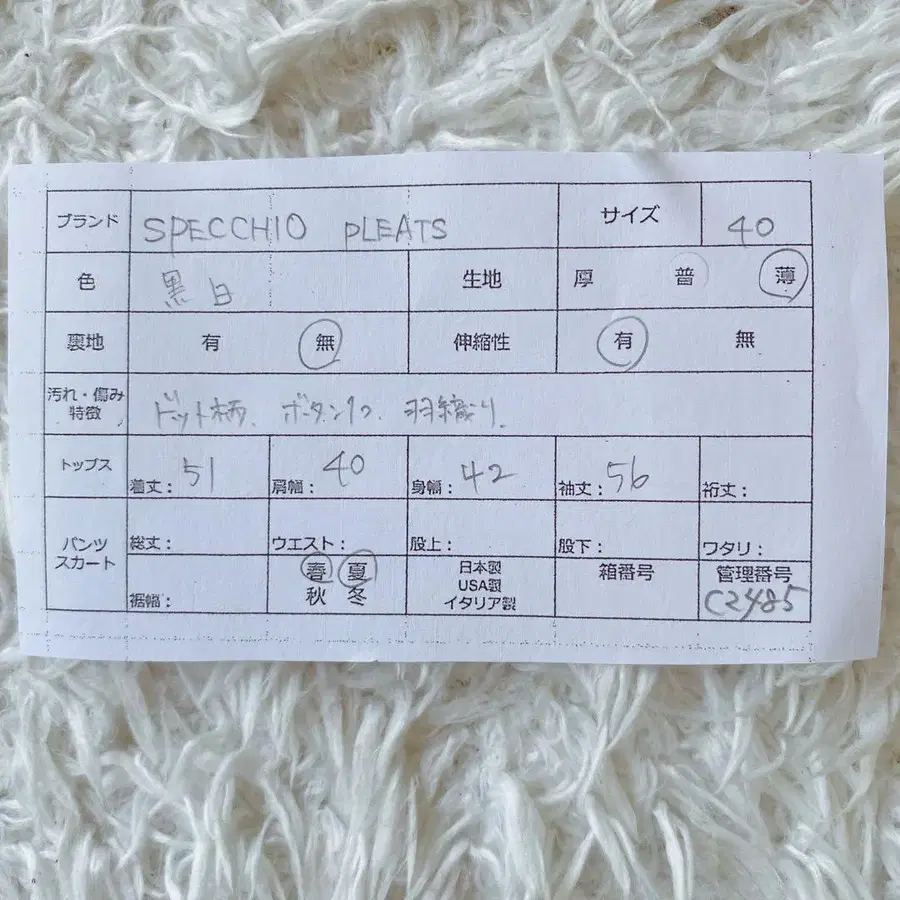 ブランド SPECCHIO PLEATS サイズ 40
色 黒白 生地 厚 普 薄
裏地 有 無 伸縮性 有 無
汚れ・傷み
特徴 ドット柄、ボタン1つ、羽織り、
トップス 着丈：51 肩幅：40 身幅：42 袖丈：56 裄丈：
パンツ
スカート 総丈： ウエスト： 股上： 股下： ワタリ：
裾幅： 春 夏
秋 冬
日本製
USA製
イタリア製
箱番号
管理番号
C2485